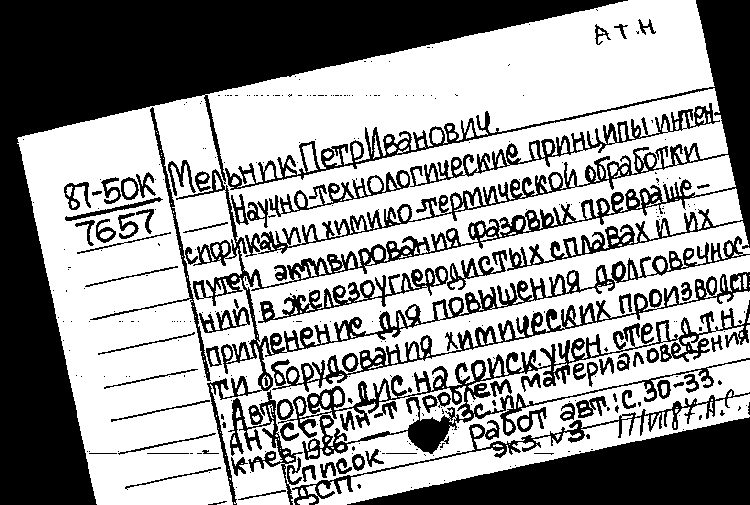 А Т Н
87-5ОК
7657
Мельник, Петр Иванович.
Научно-технологические принципы интен-
сификации химико-термической обработки
путем активирования фазовых превраще-
ний в железоуглеродистых сплавах и их
применение для повышения долговечнос-
ти оборудования химических производст
: Автореф. дис. на соиск. учен. степ. д.т.н./
АН УССР, ин-т проблем материаловедения
Киев, 1986. — 33с: ил.
Список работ авт.: с. 30-33.
ДСП. экз. №3.